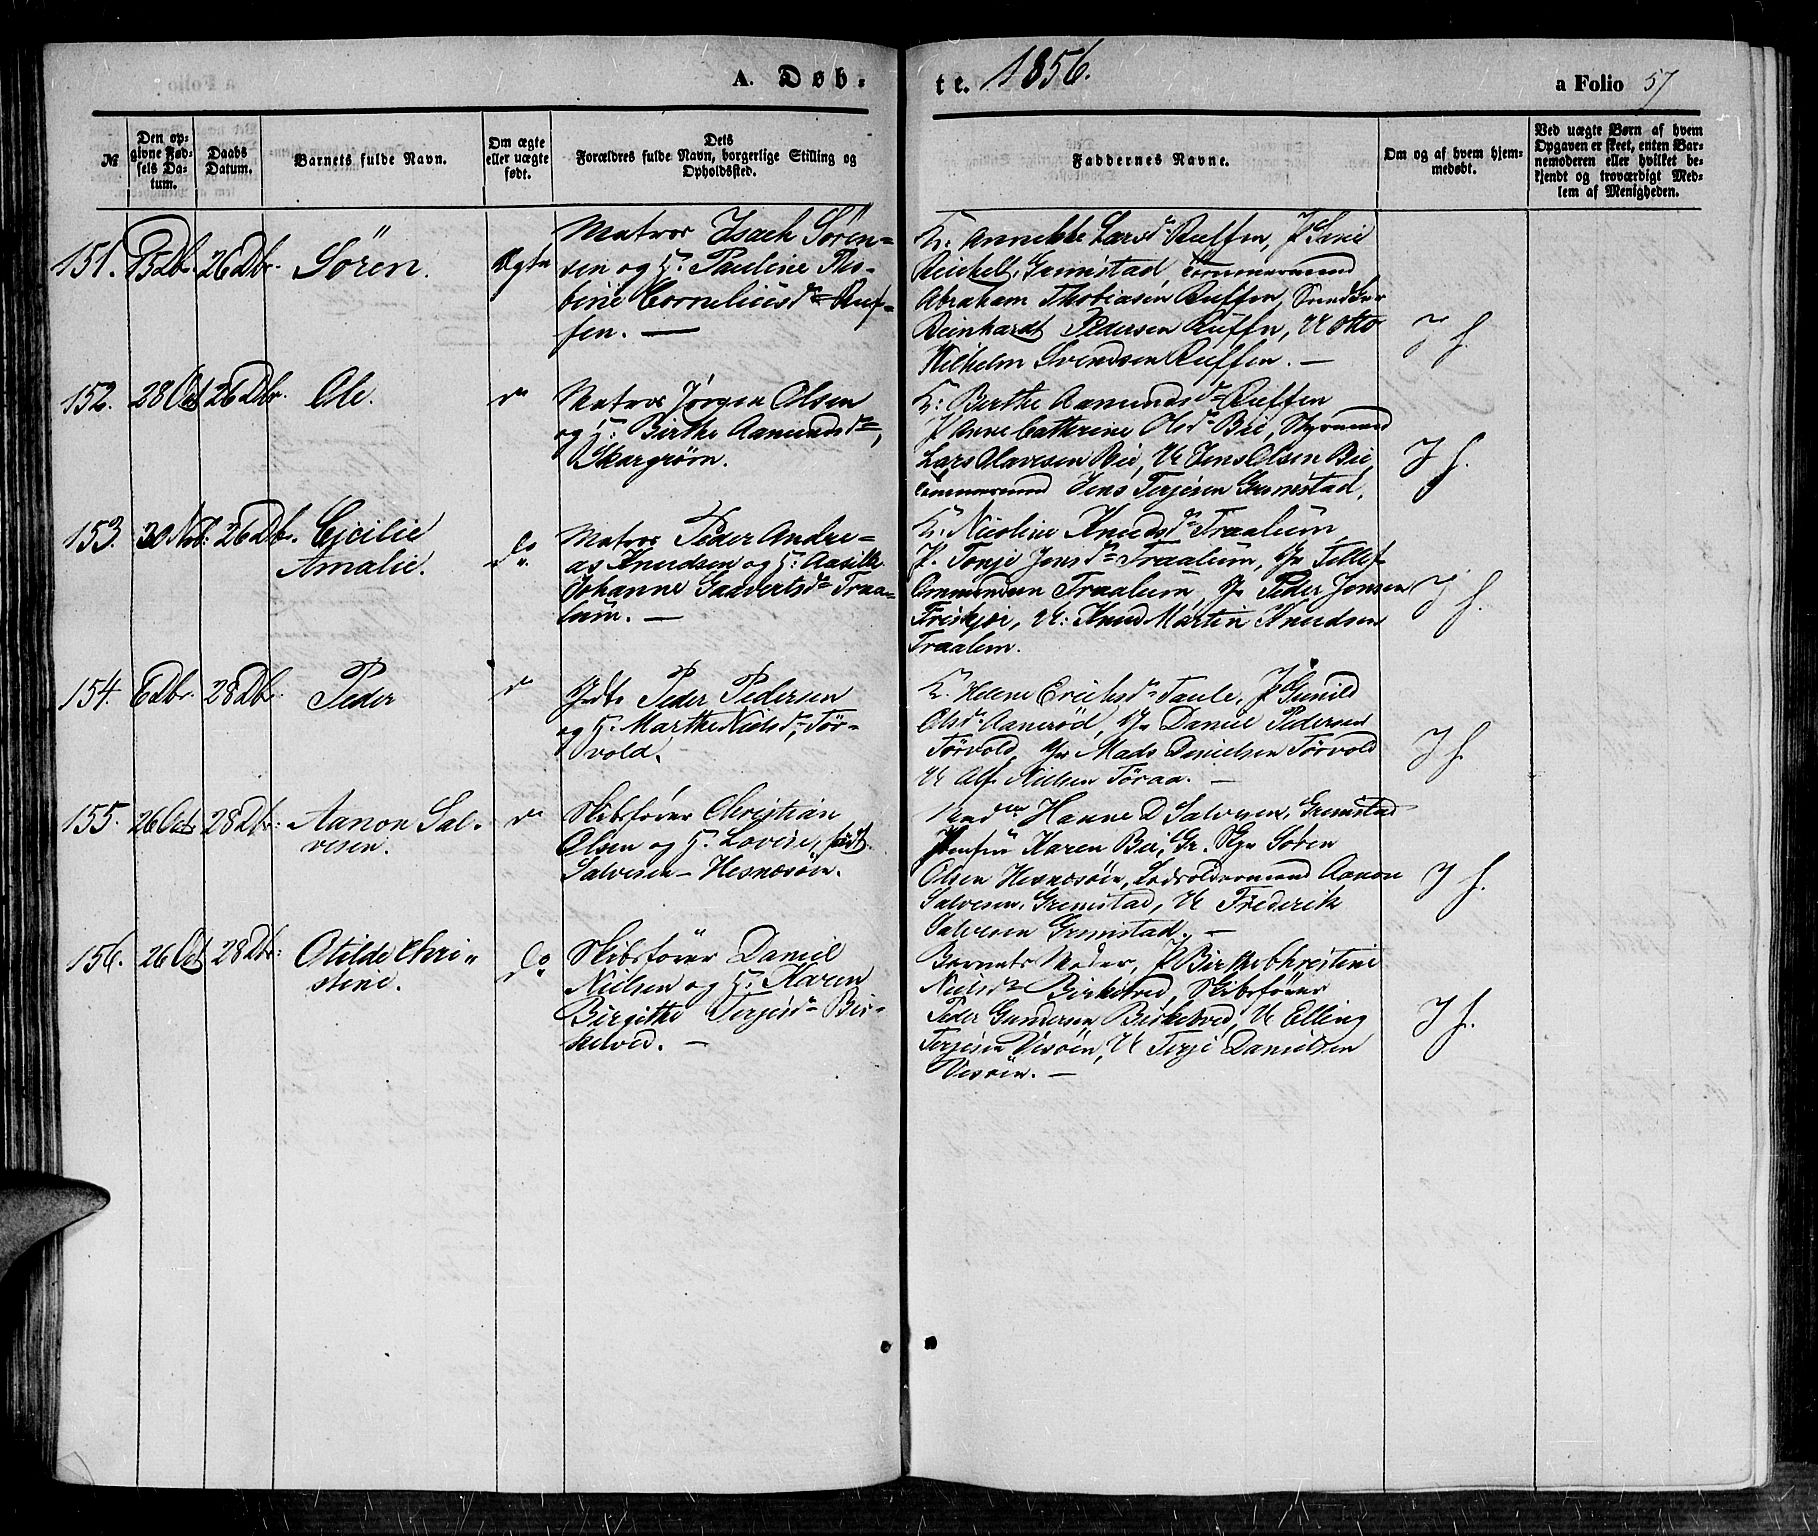 A. Døb-
te. 1856.
a Folio 57
№
Den op-
givne Fød-
sels Da-
tum.
Daabs
Datum.
Barnets fulde Navn.
Om ægte
eller uægte
født.
Dets
Forældres fulde Navn, borgerlige Stilling og
Opholdssted.
Faddernes Navne.
Om og af hvem hjem-
medøbt.
Ved uægte Børn af hvem
Opgaven er skeet, enten Bar-
nemoderen eller hvilket be-
kjendt og troværdigt Med-
lem af Menigheden.
151. 15 Dbr. 26 Dbr. Sören. Ægte
Matros Isach Sören-
sen og H. Pauline Tho-
bine Corneliusdr Ruf-
fen. —
K: Annekke Larsdr Ruffen, P
Grimstad Tömmermand
Abraham Thobiasen Ruffen,
Reinhardt Pedersen Ruffn, U Otto
Wilhelm Svendsen Ruffen. —
J f.
152. 28 Oct 26 Dbr. Ole. do
Matros Jörgen Olsen
og H: Birthe Aamundsdr,
Skargröm.
K: Birthe Aamundsdr Ruffen
P Anne Cathrine Olsdr Bie, Styrmand
Lars Olavesen Bie, U Jens Olsen Bie,
Tömmermand Jens Terjesen Grimstad,
J f.
153. 30 Nov: 26 Dbr. Cicilie
Amalie. do
Matros Peder Andre-
as Knudsen og H: Aasille
Johanne Gaavertsdr Traa-
lum. —
K: Nicoline Knudsdr Traalum,
P. Tonje Jensdr Traalum, Gr Tellef
Traalum, Gr Peder Jensen
Friskjær, U: Knud Martin Knudsen
Traalum.
J f.
154. 6 Dbr. 28 Dbr. Peder do
Peder Pedersen
og H: Marthe Nielsdr, Tör-
vold.
K. Helene Erichsdr Taule, P Gunild
Olsdr Aamröd, Gr Daniel Pedersen
Törvold, Gr Mads Danielsen Törvold
U Alf Nielsen Töraa. —
J f.
155. 26 Oct 28 Dbr: Aanon Sal-
vesen. do
Skibsförer Christian
Olsen og H. Lovise, född
Salvesen — Hesnæsöen.
Madm Hanne D Salvesen, Grimstad
Jomfru Karen Bie, Gr. Sören
Olsen Hesnæsöen, Lodsoldermand Aanon
Salvesen, Grimstad, U Frederik
Salvesen Grimstad. —
J f.
156. 26 Oct 28 Dbr: Otilde Chri-
stine. do
Skibsförer Daniel
Nielsen og H. Karen
Birgithe Terjesdr Bir-
ketved. —
Barnets Moder, P Birthe Christine
Nielsdr Birketved, Skibsförer
Peder Gundersen Birketved, U Elling
Terjesen Visöen, U Terje Danielsen
Visöen. —
J f.